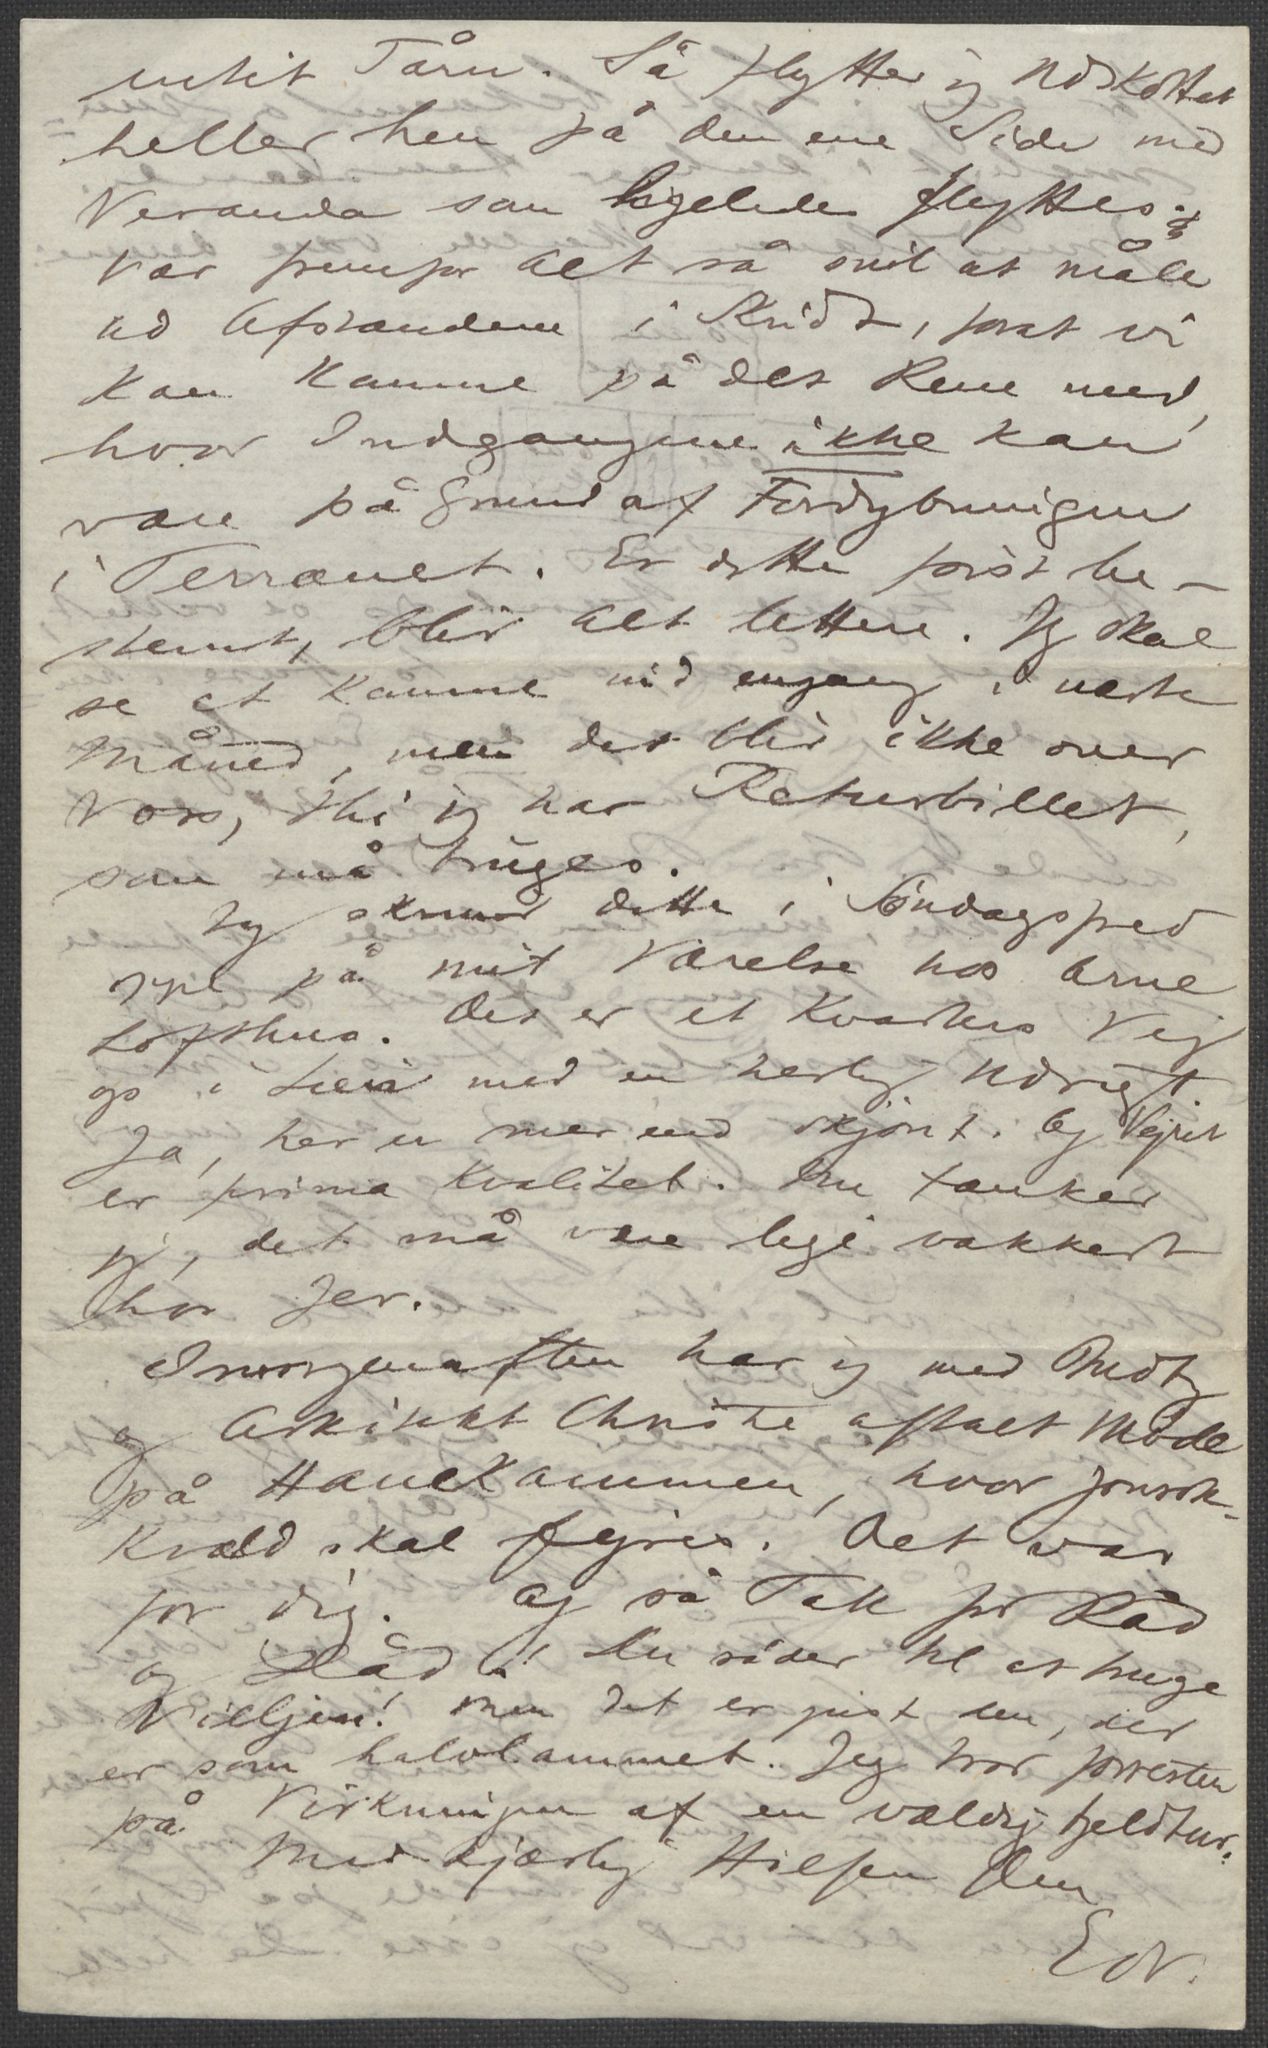 intit Tårn. Så flytter jeg Udskottet
heller hen på den ene Side med
Veranda som ligeledes flyttes. Og
vær fremfor Alt så snil at måle
ud Afstandene i Skridt, forat vi
kan komme på det Rene med,
hvor Indgangene ikke kan
være på Grund af Fordybningen
i Terrænet. Er dette først be-
stemt, blir Alt lettere. Jeg skal
se at komme ind engang i næste
Måned, men det blir ikke over
Voss, thi jeg har Returbillet,
som må bruges.
Jeg skriver dette i Søndagsfred
på mit Værelse hos Arne
Lofthus. Det er et Kvarters Vej
op i Lien med en herlig Udsigt.
Ja, her er mer end skjønt. Og Vejret
er prima Kvalitet. Nu tænker
jeg, det må være lige vakkert
hos Jer.
Imorgenaften har jeg med
og Arkitekt Christie aftalt Møde
på Hanekammen, hvor Jonsok-
kvæld skal fejres. Det var
for dig. Og så Tak for Råd
og Dåd! Du råder til at bruge
Viljen! Men det er just den, der
er som halvlammet. Jeg tror forresten
på Virkningen af en vældig Fjeldtur.
Med kjærlig Hilsen Din
Edv.